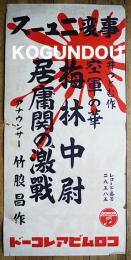 事變ニュース
KOGUNDOU
空軍の華
梅林中尉
居庸関の激戰
アナウンサー 竹脇昌作
コロムビアレコード